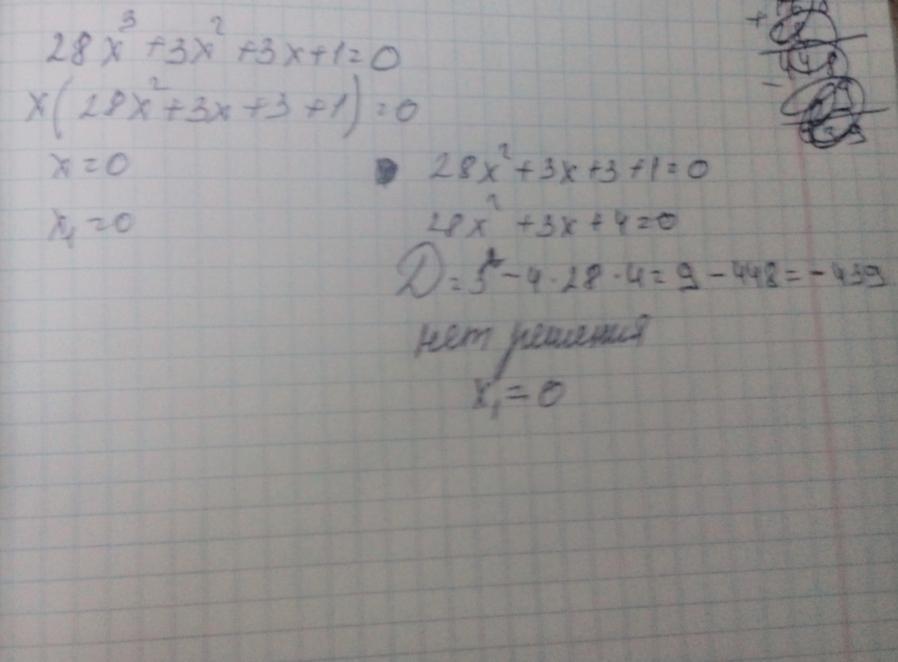 28x³ + 3x² + 3x + 1 = 0
x(28x² + 3x + 3 + 1) = 0
x = 0
28x² + 3x + 3 + 1 = 0
x₁ = 0
28x² + 3x + 4 = 0
D = 3² - 4 · 28 · 4 = 9 - 448 = - 439
нет решения
x₁ = 0